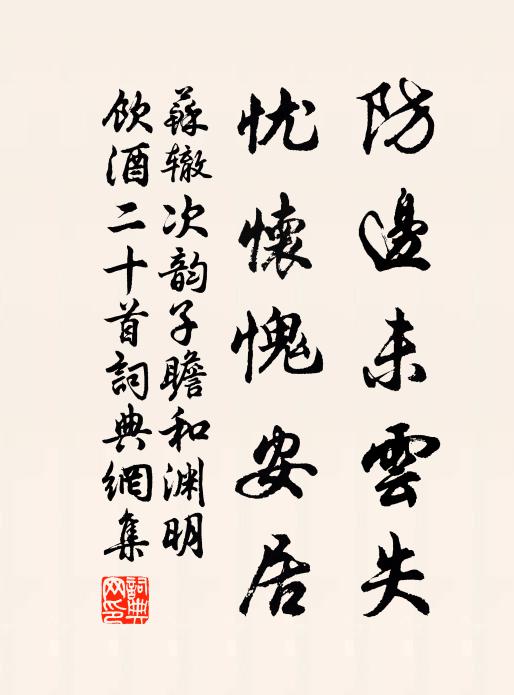 防邊未雲失
忧懷愧安居
蘇辙次韵子瞻和渊明
饮酒二十首詞典網集
詞典網印